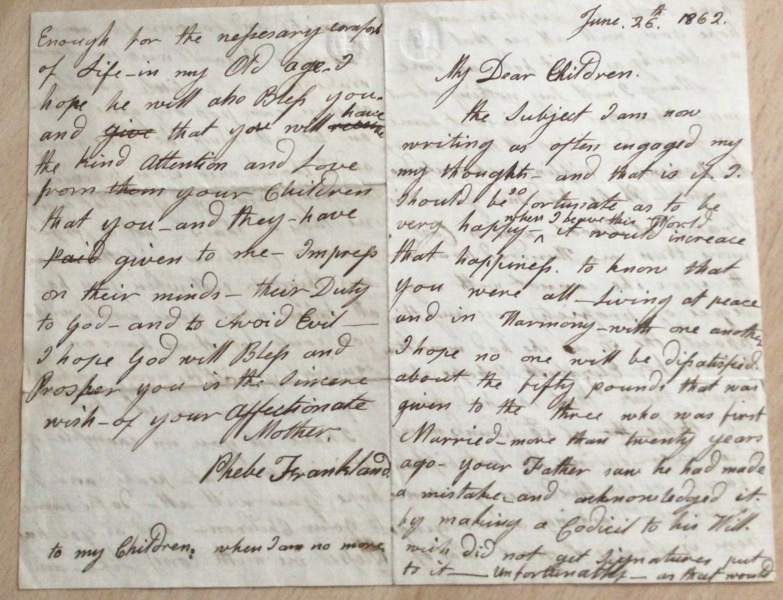 June. 26.th 1862.
My Dear Children.
the Subject I am now
writing as often engaged my
my thoughts - and that is if I.
Should be so fortunate as to be
very happy - when I leave this World it would increase
that happiness. to know that
you were all - Living at peace
and in Harmony - with one another
I hope no one will be disatisfied.
about the fifty pounds that was
given to the three who was first
Married - more than twenty years
ago - your Father saw he had made
a mistake and acknowledged it.
by making a Codicil to his Will.
wich did not get Signatures put
to it — Unfortunately - as that would
Enough for the nessesary comfort
of Life - in my Old age - I
hope he will also Bless you.
and give that you will receive have
the kind Attention and Love
from them your Children
that you - and they - have
paid given to me - Impress
on their minds - their Duty
to God - and to Avoid Evil —
I hope God will Bless and
Prosper you is the Sincere
wish - of your affectionate
Mother.
Phebe Frankland.
to my Children. when I am no more